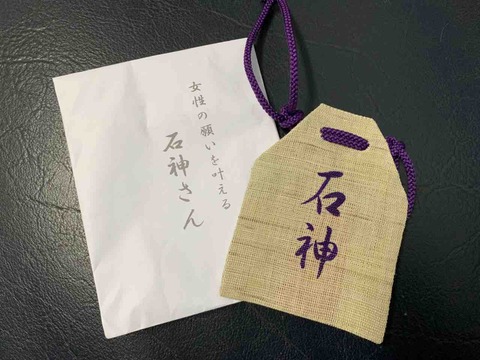 女性の願いを叶える
石神さん
石神